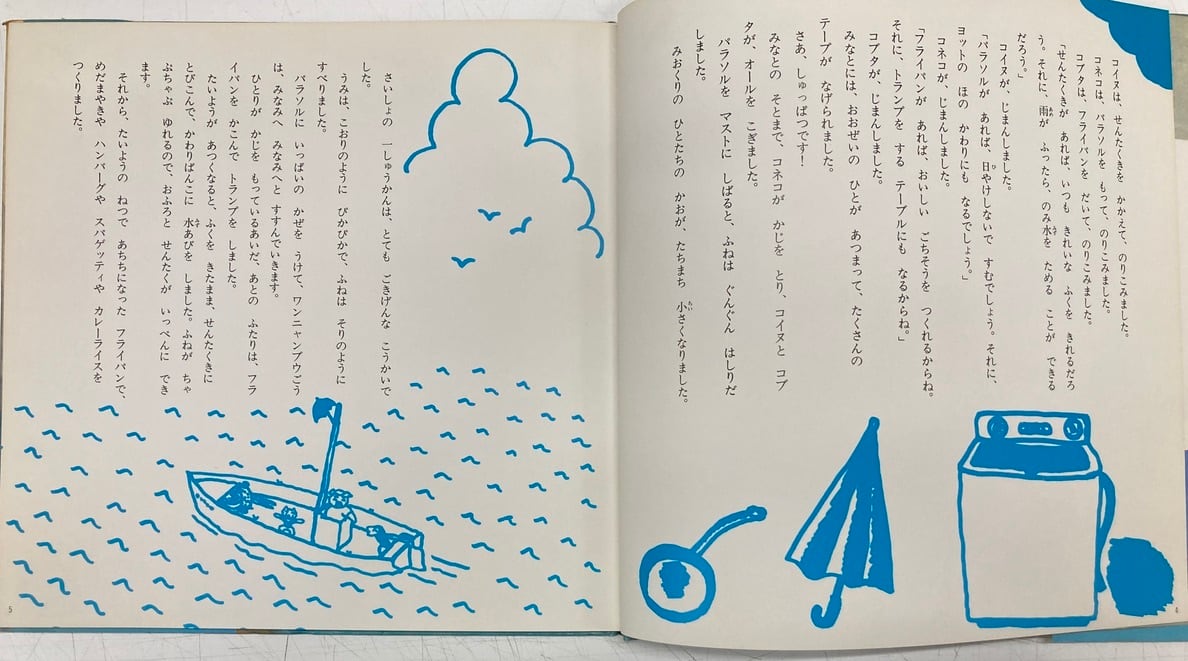 コイヌは、せんたくきを かかえて、のりこみました。
コネコは、パラソルを もって、のりこみました。
コブタは、フライパンを だいて、のりこみました。
「せんたくきが あれば、いつも きれいな ふくを きれるだろ
う。それに、雨が ふったら、のみ水を ためる ことが できる
だろう。」
コイヌが、じまんしました。
「パラソルが あれば、日やけしないで すむでしょう。それに、
ヨットの ほの かわりにも なるでしょう。」
コネコが、じまんしました。
「フライパンが あれば、おいしい ごちそうを つくれるからね。
それに、トランプを する テーブルにも なるからね。」
コブタが、じまんしました。
みなとには、おおぜいの ひとが あつまって、たくさんの
テープが なげられました。
さあ、しゅっぱつです!
みなとの そとまで、コネコが かじを とり、コイヌと コブ
タが、オールを こぎました。
パラソルを マストに しばると、ふねは ぐんぐん はしりだ
しました。
みおくりの ひとたちの かおが、たちまち 小さくなりました。
4
さいしょの 一しゅうかんは、とても ごきげんな こうかいで
した。
うみは、こおりのように ぴかぴかで、ふねは そりのように
すべりました。
パラソルに いっぱいの かぜを うけて、ワンニャンブウごう
は、みなみへ みなみへと すすんでいきます。
ひとりが かじを もっているあいだ、あとの ふたりは、フラ
イパンを かこんで トランプを しました。
たいようが あつくなると、ふくを きたまま、せんたくきに
とびこんで、かわりばんこに 水あびを しました。ふねが ちゃ
ぷちゃぷ ゆれるので、おふろと せんたくが いっぺんに でき
ます。
それから、たいようの ねつで あちちになった フライパンで、
めだまやきや ハンバーグや スパゲッティや カレーライスを
つくりました。
5